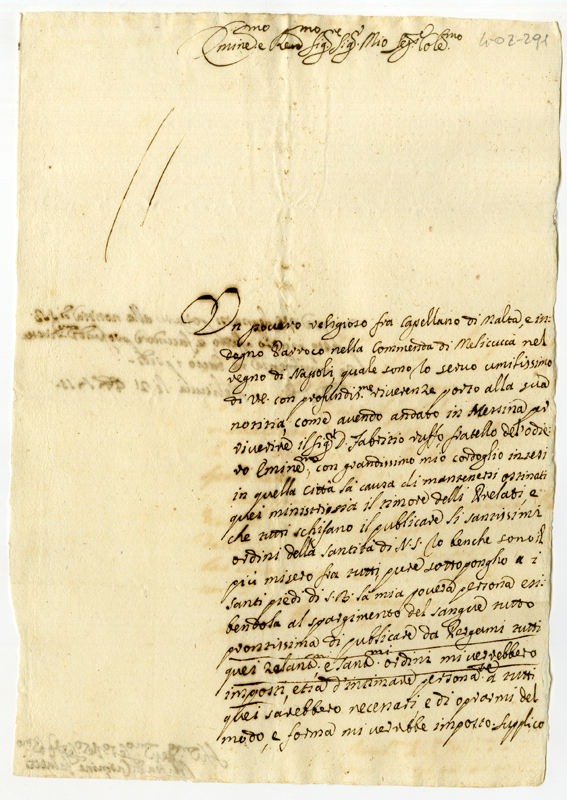 Emin.mo e Rev.mo Sig.re Sig.re Mio Sig.re Cole.mo
4-02-291
Un povero religioso fra Capellano di Malta, e in
degno Parroco nella Commenda di Melicuccà nel
regno di Napoli, quale sono lo servo umilissimo
di VE. con profundis.me riverenze porto alla sua
notitia, come avendo andato in Mersina per
riverire il sig.r D. Fabritio ruffo fratello del odie
ro Emine.mo, con grandissimo mio cordoglio intesi
in quella Città la causa di mantenersi ostinati
quei ministri sia il timore delli Prelati e
che tutti schifano il publicare li santissimi
ordini della Santità di N.S. Io benche sono il
più misero fra tutti pure sottopongho a i
santi piedi di S.B. la mia povera persona esi
bendola al spargimento del sangue tutto
prontissima di publicare da Pergami tutti
quei ordini mi verrebbero
imposti, etia d'intimare persona.te à tutti
quei sarebbero necenari, e di oprarmi del
modo, e forma mi verebbe imposto. Supplico